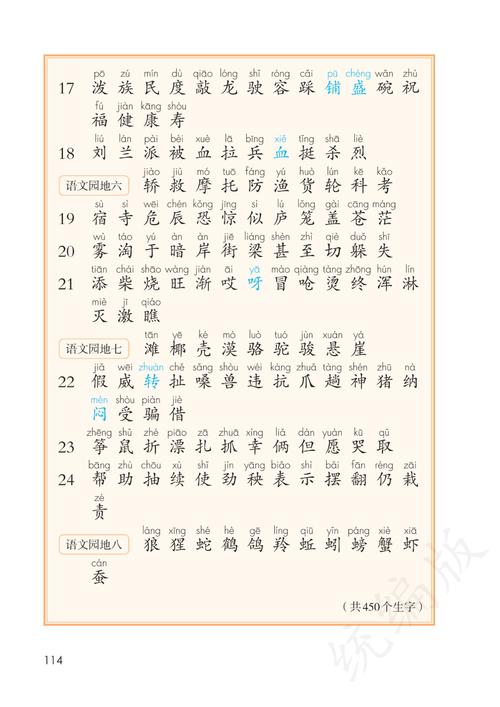 pō zú mín dù qiāo lóng shǐ róng cǎi pū chéng wǎn zhù
17 泼 族 民 度 敲 龙 驶 容 踩 铺 盛 碗 祝
fú jiàn kāng shòu
福 健 康 寿
liú lán pài bèi xuè lā bīng xiě tǐng shā liè
18 刘 兰 派 被 血 拉 兵 血 挺 杀 烈
jiào jiù mó tuō fáng yú huò lún kē kǎo
语文园地六 轿 救 摩 托 防 渔 货 轮 科 考
sù sì wēi chén kǒng jīng sì lú lǒng gài cāng máng
19 宿 寺 危 辰 恐 惊 似 庐 笼 盖 苍 茫
wù táo yú àn àn jiē liáng shèn zhì qiè duǒ shī
20 雾 淘 于 暗 岸 街 梁 甚 至 切 躲 失
tiān chái shāo wàng jiàn āi yā mào qiāng tàng zhōng hún lín
21 添 柴 烧 旺 渐 哎 呀 冒 呛 烫 终 浑 淋
miè jī qiáo
灭 激 瞧
tān yē ké mò luò tuó jùn xuán yá
语文园地七 滩 椰 壳 漠 骆 驼 骏 悬 崖
jiǎ wēi zhuàn chě sǎng shòu wéi kàng zhuǎ tàng shén zhū nà
22 假 威 转 扯 嗓 兽 违 抗 爪 趟 神 猪 纳
mèn shòu piàn jiè
闷 受 骗 借
zhēng shǔ shé piāo zā zhuā xìng liǎ dàn yuàn kū qǔ
23 筝 鼠 折 漂 扎 抓 幸 俩 但 愿 哭 取
bāng zhù chōu xù shǐ jìn yāng biǎo shì bǎi fān réng zāi
24 帮 助 抽 续 使 劲 秧 表 示 摆 翻 仍 栽
zé
责
láng xīng shé hè gē líng qiū yǐn páng xiè xiā
语文园地八 狼 猩 蛇 鹤 鸽 羚 蚯 蚓 螃 蟹 虾
cán
蚕
（共450个生字）
114
统编版